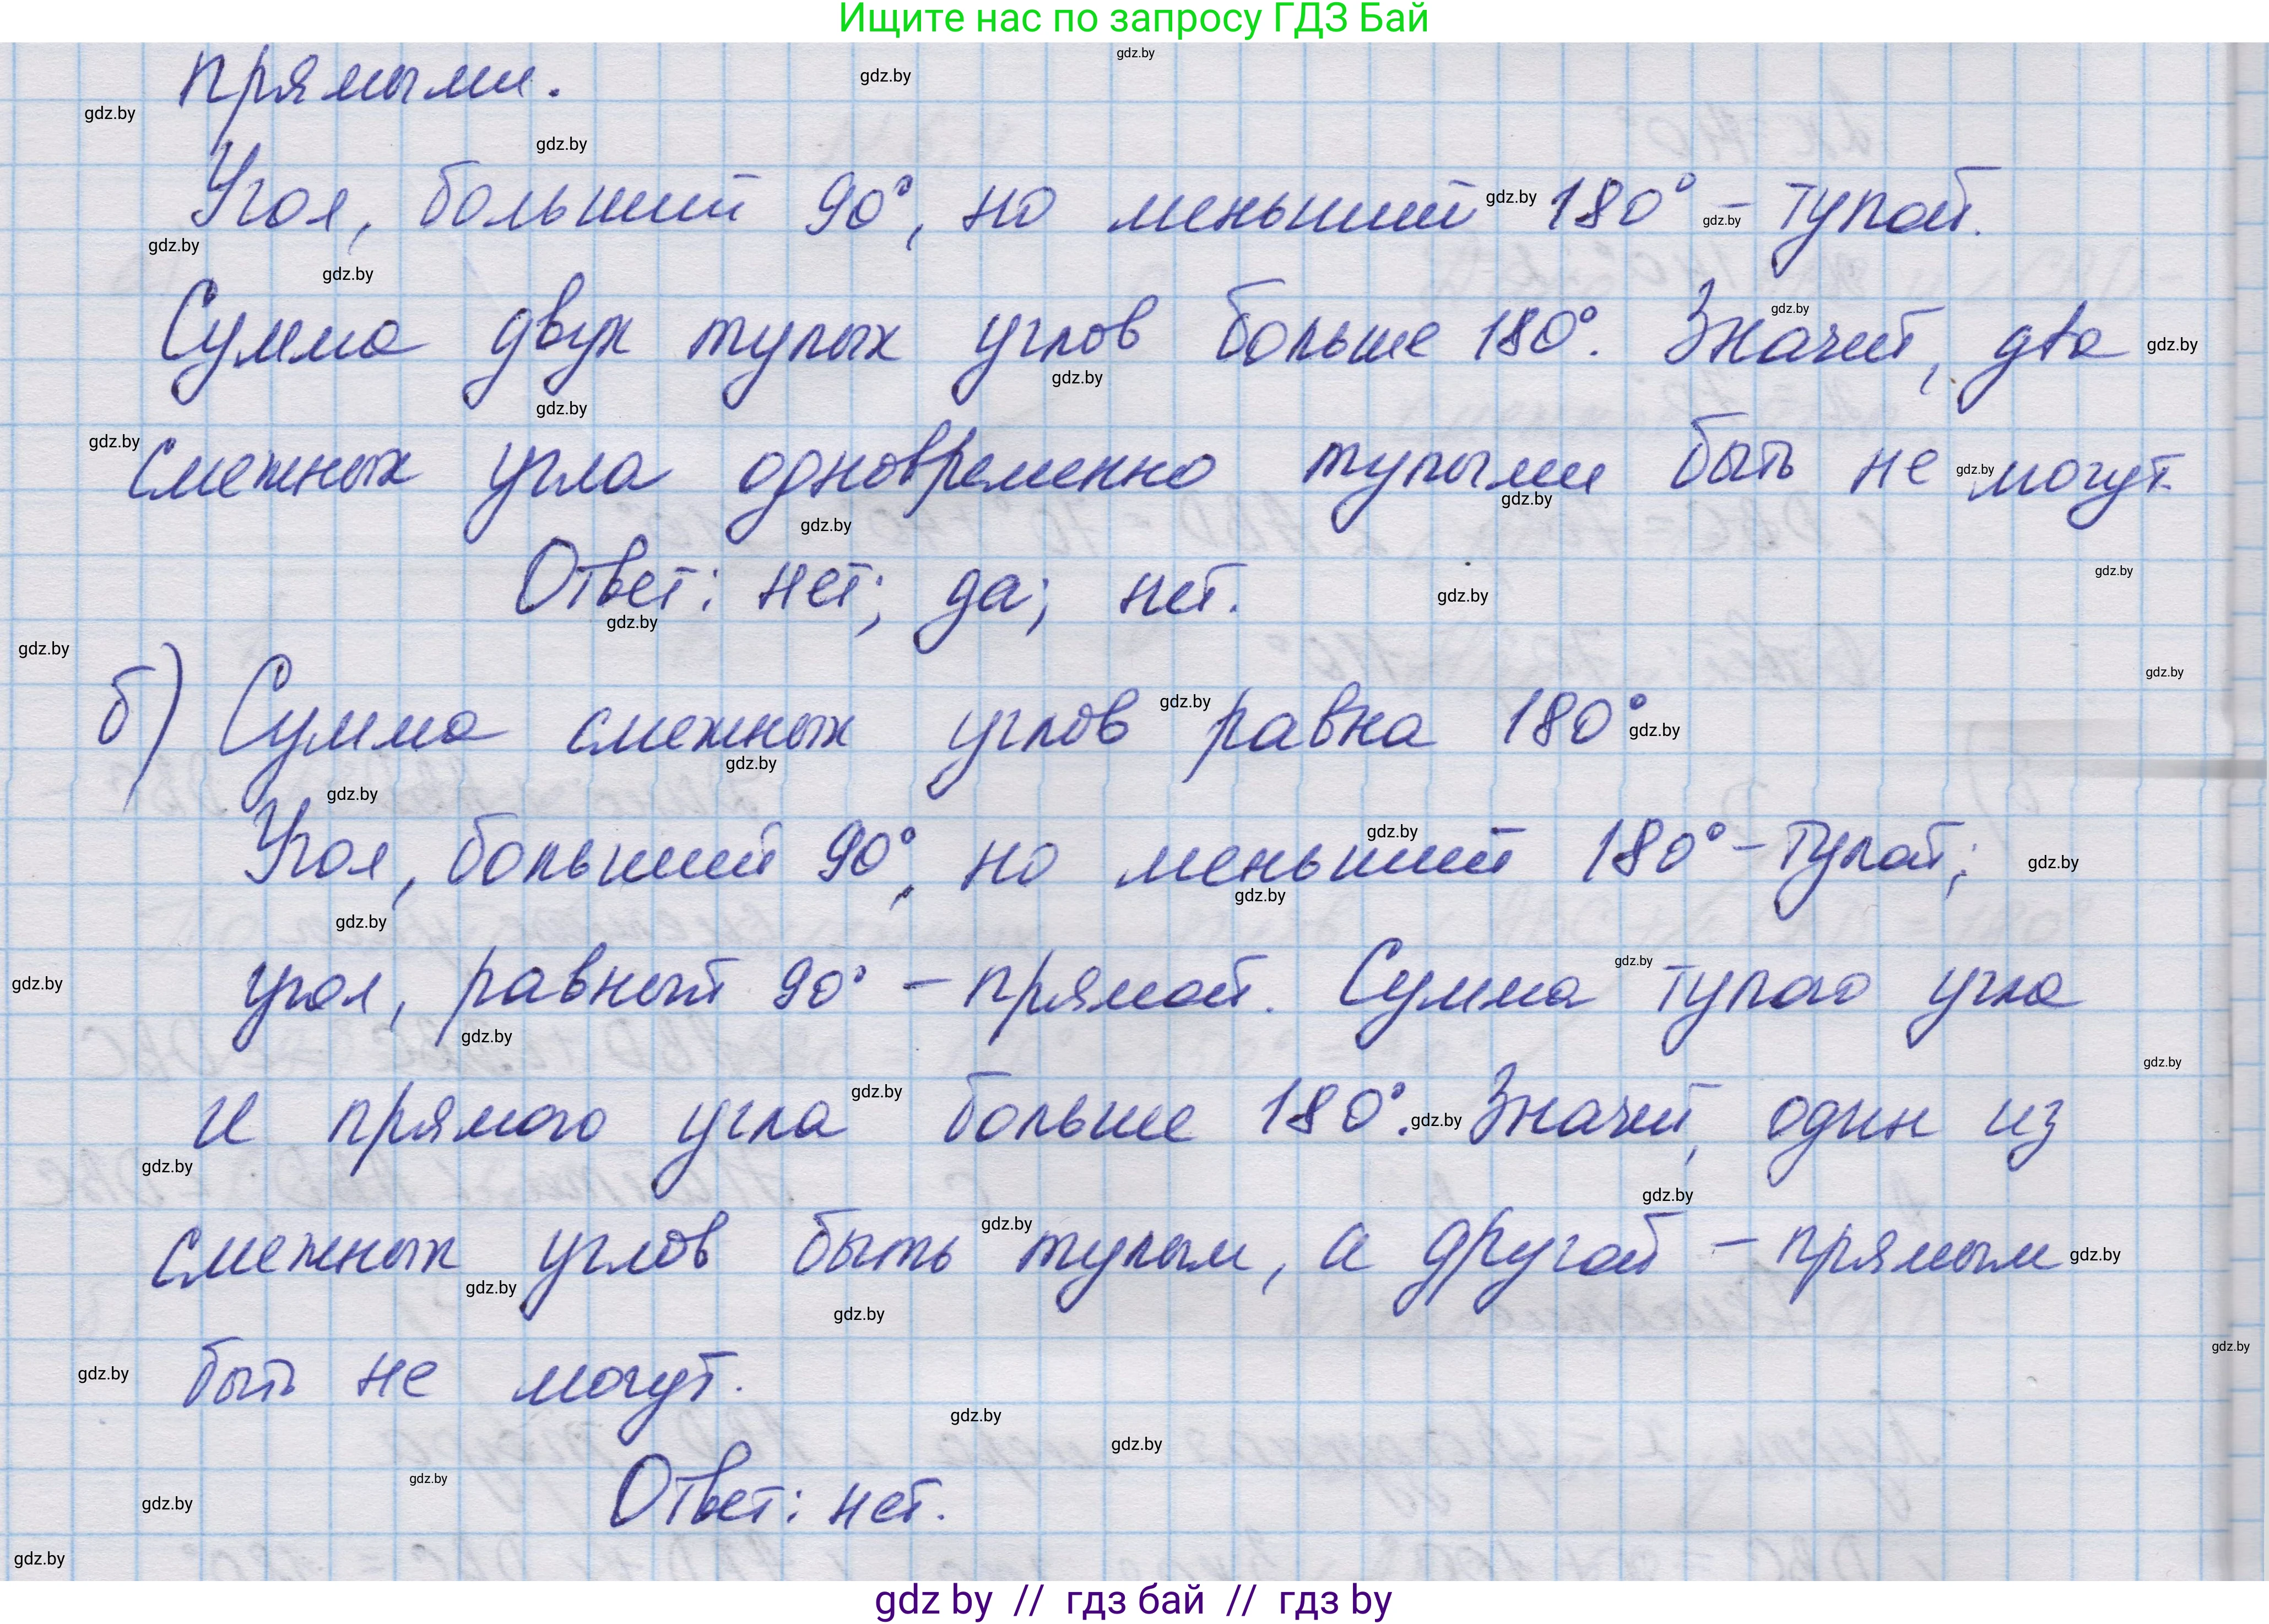 Ищите нас по запросу ГДЗ Бай
прямыми.
Угол, больший 90°, но меньший 180° - тупой.
Сумма двух тупых углов больше 180°. Значит, два
смежных угла одновременно тупыми быть не могут.
Ответ: нет; да; нет.
б) Сумма смежных углов равна 180°
Угол, больший 90°, но меньший 180° - тупой;
угол, равный 90° - прямой. Сумма тупого угла
и прямого угла больше 180°. Значит, один из
смежных углов быть тупым, а другой - прямым
быть не могут.
Ответ: нет.
gdz by // гдз бай // гдз by